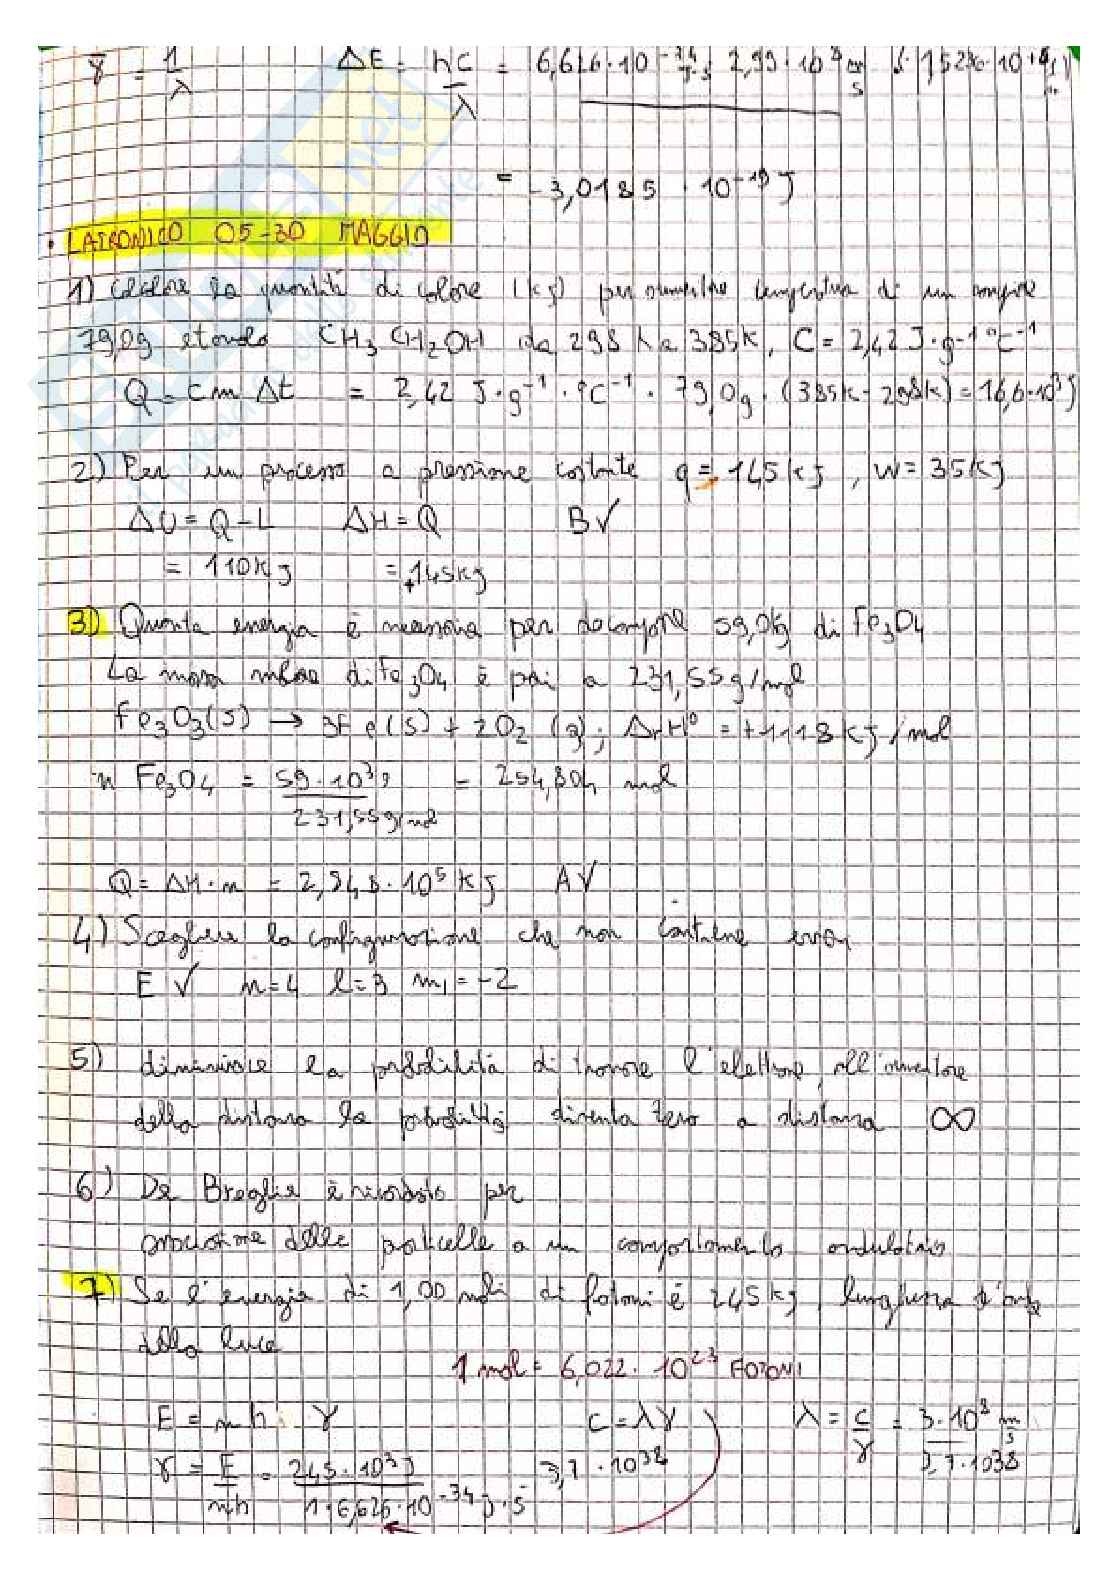 γ̄ = 1/λ   ΔE = hc/λ = 6,626·10⁻³⁴ J·s · 2,99·10⁸ m/s
= -3,0185 · 10⁻¹⁹ J
• LATRONICO 05-30 MAGGIO
1) la quantità di calore (kJ) per temperatura di un campione
79,0g etanolo CH₃CH₂OH da 298 K a 385K, C = 2,42 J·g⁻¹ °C⁻¹
Q = cm Δt = 2,42 J·g⁻¹·°C⁻¹ · 79,0g · (385K - 298K) = 16,6·10³J
2) Per un processo a pressione costante q = 145 kJ, W = 35kJ
ΔU = Q - L   ΔH = Q   B √
= 110kJ   = +145kJ
3) Quanta energia è necessaria per decomporre 59,0kg di Fe₃O₄
La massa molare di Fe₃O₄ è pari a 231,55 g/mol
Fe₃O₃(s) → 3Fe(s) + 2O₂ (g); ΔrH⁰ = +1118 kJ/mol
n Fe₃O₄ = 59·10³g / 231,55 g/mol = 254,804 mol
Q = ΔH·n = 2,848·10⁵ kJ   A √
4) Scegliere la configurazione che non contiene errori
E √   n=4   l=3   m₁=-2
5) diminuisce la probabilità di trovare l'elettrone all'aumentare
della distanza la probabilità diventa zero a distanza ∞
6) De Broglie è ricordato per
associazione delle particelle a un comportamento ondulatorio
7) Se l'energia di 1,00 moli di fotoni è 245 kJ, lunghezza d'onda
della luce
1 mol = 6,022·10²³ FOTONI
E = n h γ   c = λγ   λ = c/γ = 3·10⁸ m/s / 3,7·10³⁸
γ = E/nh = 245·10³J / 1·6,626·10⁻³⁴ J·s   3,7·10³⁸